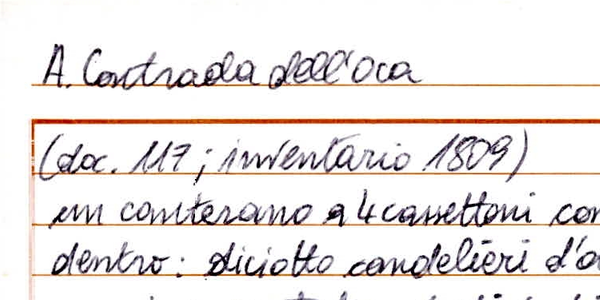 A. Contrada dell'Oca
(doc. 117; inventario 1809)
un canterano a 4 cassettoni con
dentro: diciotto candelieri d'o